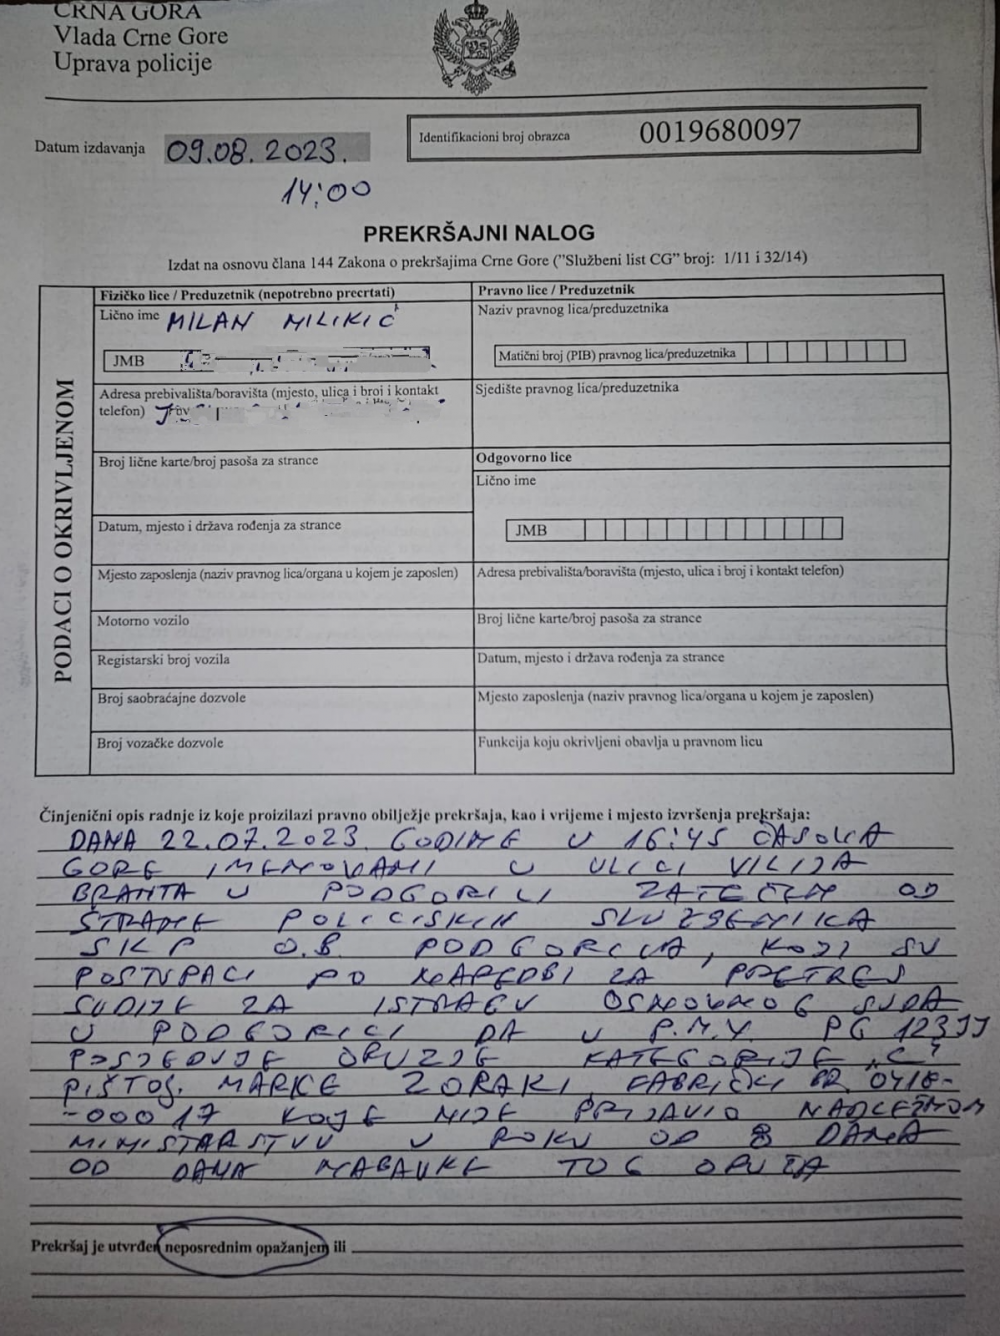 CRNA GORA
Vlada Crne Gore
Uprava policije
Datum izdavanja 09.08.2023.
14:00
Identifikacioni broj obrazca 0019680097
PREKRŠAJNI NALOG
Izdat na osnovu člana 144 Zakona o prekršajima Crne Gore ("Službeni list CG" broj: 1/11 i 32/14)
PODACI O OKRIVLJENOM
Fizičko lice / Preduzetnik (nepotrebno precrtati)
Lično ime MILAN MILIKIĆ
JMB
Adresa prebivališta/boravišta (mjesto, ulica i broj i kontakt
telefon)
Broj lične karte/broj pasoša za strance
Datum, mjesto i država rođenja za strance
Mjesto zaposlenja (naziv pravnog lica/organa u kojem je zaposlen)
Motorno vozilo
Registarski broj vozila
Broj saobraćajne dozvole
Broj vozačke dozvole
Pravno lice / Preduzetnik
Naziv pravnog lica/preduzetnika
Matični broj (PIB) pravnog lica/preduzetnika
Sjedište pravnog lica/preduzetnika
Odgovorno lice
Lično ime
JMB
Adresa prebivališta/boravišta (mjesto, ulica i broj i kontakt telefon)
Broj lične karte/broj pasoša za strance
Datum, mjesto i država rođenja za strance
Mjesto zaposlenja (naziv pravnog lica/organa u kojem je zaposlen)
Funkcija koju okrivljeni obavlja u pravnom licu
Činjenični opis radnje iz koje proizilazi pravno obilježje prekršaja, kao i vrijeme i mjesto izvršenja prekršaja:
DANA 22.07.2023. GODINE U 16:45 ČASOVA
GORE IMENOVANI U ULICI VILIJA
BRANTA U PODGORICI ZATEČEN OD
STRANE POLICISKIH SLUŽBENIKA
SKP O.B. PODGORICA, KOJI SU
POSTUPACI PO NAREDBI ZA PRETRES
SUDIJE ZA ISTRAGU OSNOVNOG SUDA
U PODGORICI DA U P.M.V. PG
POSJEDUJE ORUZJE KATEGORIJE "C"
PIŠTOJ. MARKE ZORAKI, FABRIČKI BR 0418-
-00017 KOJE NIJE PRIJAVIO NADLEŽNOM
MINISTARSTVU U ROKU OD 8 DANA
OD DANA NABAVKE TOG ORUŽJA
Prekršaj je utvrđen neposrednim opažanjem ili